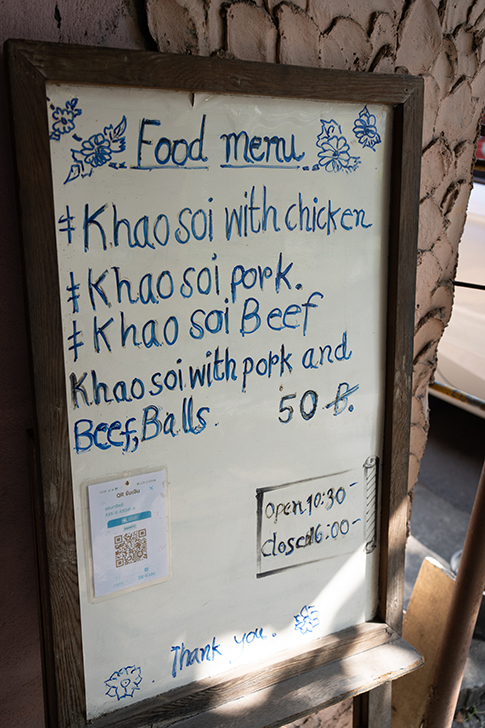 Food menu
‡Khao soi with chicken
‡Khao soi pork.
‡Khao soi Beef
Khao soi with pork and
Beef,Balls. 50 ฿.
open 10:30-
closed 16:00-
Thank you.